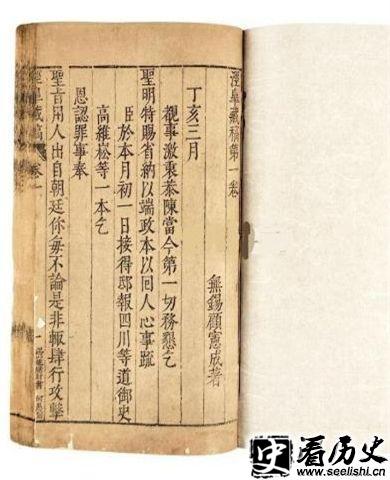 涇臯藏稿第一卷
無錫顧憲成著
丁亥三月
覩事激衷恭陳當今第一切務懇乞
聖明特賜省納以端政本以回人心事疏
臣於本月初一日接得邸報四川等道御史
高維崧等一本乞
恩認罪事奉
聖旨用人出自朝廷你每不論是非輒肆行攻擊
涇臯藏稿 卷一
一
史 看历史
www.seelishi.cn